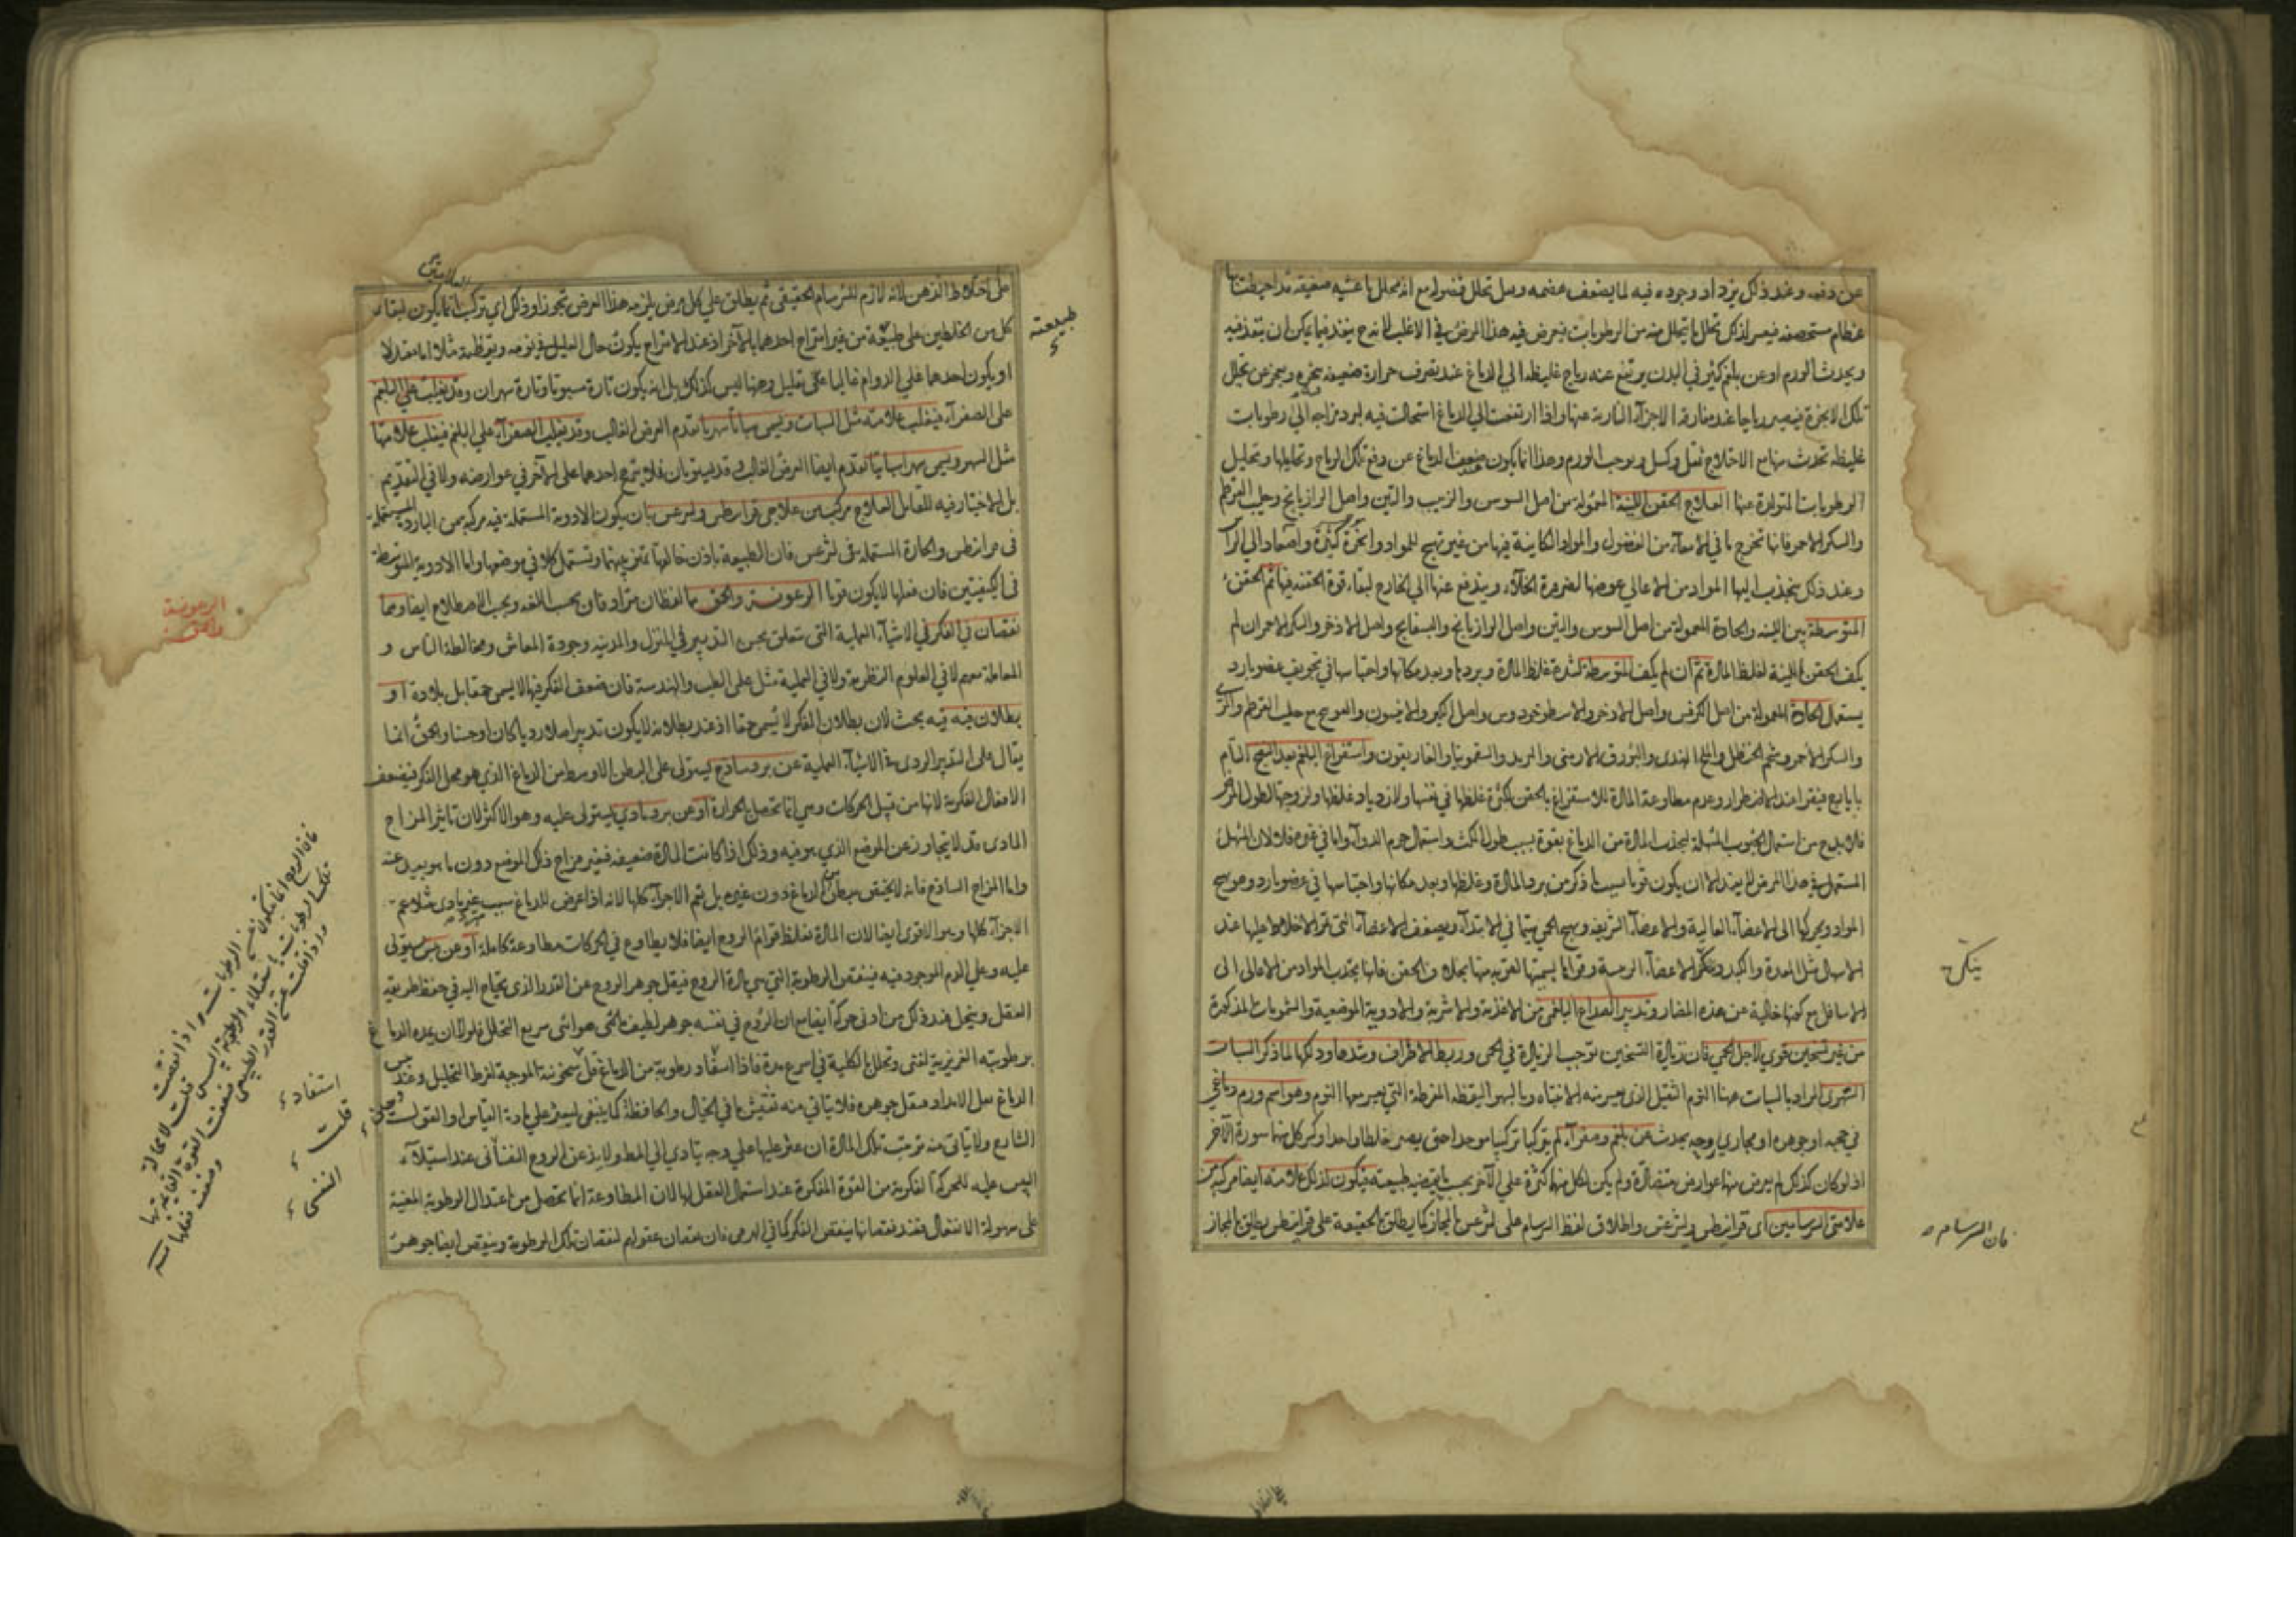 عن دفعه وعند ذلك يزداد وجوده فيه لما يضعف عضمه وهل تحلل فضوله مع انه محلل باغشيه صفيقه قد احيطت بها
عظام مستحصفه فيعسر لذلك تحلل ما يتحلل منه من الرطوبات فيعرض فيه هذا المرض في الاغلب لانه ح ينفذ فيما يمكن ان ينفذ فيه
ويحدث الورم او عن بلغم كثير في البدن يرتفع عنه رياح غليظه الي الدماغ عند تصرف حرارة ضعيفه بخره ويعجز عن تحلل
تلك الابخرة فيصير رياحا عند مفارقة الاجزآء النارية عنها واذا ارتفعت الي الدماغ استحالت فيه لبرد مزاجه الي رطوبات
غليظه تحدث منها مع الاختلاج ثقل وكسل ويوجب الورم وهذا انما يكون لضعف الدماغ عن دفع تلك الرياح وتحليلها وتحليل
الرطوبات المتولدة عنها العلاج الحقن اللينة المعمولة من اصل السوس والزبيب والتين واصل الرازيانج وحليب القرطم
والسكر الاحمر فانها تخرج ما في الامعآء من الفضول والمواد الكاينة فيها من غير تهيج للمواد وابخرة كثيرة واصعاد الي الراس
وعند ذلك ينجذب اليها المواد من الاعالي عوضها لضرورة الخلآء ويندفع عنها الي الخارج لبقاء قوة الحقنه فيها ثم الحقن
المتوسطة بين اللينه والحادة المعمولة من اصل السوس والتين واصل الرازيانج والبسفايج واصل الاذخر والسكر الاحمر ان لم
يكف الحقن اللينة لغلظ المادة ثم ان لم يكف المتوسطة لشدة غلظ المادة وبردها وبعد مكانها واحتباسها في تجويف عضو بارد
يستعمل الحادة المعمولة من اصل الكرفس واصل الاذخر والاسطوخودوس واصل الكبر والانيسون والعوسج مع حليب القرطم
والسكر الاحمر وشحم الحنظل والملح الهندي والبورق الارمني والتربد والسقمونيا والغاريقون واستفراغ البلغم بعد النضج التام
بايارج فيقرا عند الاضطرار وعدم مطاوعة المادة للاستفراغ بالحقن لكثرة غلظها في نفسها ولازدياد غلظها ولزوجتها لطول المرض
فلا بد ح من استعمال الحبوب المسهلة لجذب المادة من الدماغ بقوة بسبب طول المكث واستعمال جرم الدوآء واما في غيره فلا لان المسهل
المستعمل في هذا المرض لا يفيد الا ان يكون قويا بسبب ما ذكر من برد المادة وغلظها وبعد مكانها واحتباسها في عضو بارد وهو يهيج
المواد ويحركها الي الاعضآء العالية والاعضآء الشريفه ويهيج الحمي سيما في الابتدآء ويضعف الاعضآء التي تمر الاخلاط عليها عند
الاسهال مثل المعدة والكبد وينكي الاعضآء الرئيسة وقواها بسميتها لقربه منها بخلاف الحقن فانها يجذب المواد من الاعالي الي
الاسافل مع كونها خالية عن هذه المضار وتدبير الصداع البلغمي من الاغذية والاشربة والادوية الموضعية والشمومات المذكورة
من غير تسخين قوي لاجل الحمي فان زيادة التسخين توجب الزيادة في الحمي وربط الاطراف وشدها ودلكها لما ذكر السبات
السهري المراد بالسبات ههنا النوم الثقيل الذي يعسر منه الانتباه وبالسهر اليقظه المفرطة التي يعسر معها النوم وهو اسم ورم دماغي
في حجبه او جوهره او مجاري روحه يحدث عن بلغم وصفرآء لم يتركبا تركيبا موحدا حتي يصير خلطا واحدا وكسر كل منهما سورة الآخر
اذ لو كان كذلك لم يعرض منها عوارض متضادة ولم يكن لكل منهما كثرة علي الآخر بحسب ما يقتضيه طبيعته فيكون لذلك علاماته ايضا مركبه من
علامتي السرسامين اي قرانيطس وليثرغس واطلاق لفظ السرسام علي ليثرغس بالمجاز كما يطلق بالحقيقة علي قرانيطس يطلق بالمجاز
ينكي
فان السرسام
علي اختلاط الذهن لانه لازم للسرسام الحقيقي ثم يطلق علي كل مرض يلزمه هذا العرض تجوزا وذلك اي تركب العلامتين انما يكون لبقاء
كل من الخلطين علي طبيعته من غير امتزاج احدهما بالآخر اذ عند الامتزاج يكون حال العليل في نومه ويقظته مثلا اما معتدلا
او يكون احدهما علي الدوام غالبا علي قليل وههنا ليس كذلك بل انه يكون تارة مسبوتا وتارة سهران وقد يغلب علي البلغم
علي الصفرآء فيغلب علاماته مثل السبات ويسمي سباتا سهريا تقدم العرض الغالب وقد يغلب الصفرآء علي البلغم فيغلب علاماتها
مثل السهر ويسمي سهرا سباتيا لتقدم ايضا العرض الغالب وقد يستويان فلا يترجح احدهما علي الآخر في عوارضه ولا في التقديم
بل الاختيار فيه للقايل العلاج مركب من علاجي قرانيطس وليثرغس بان يكون الادوية المستعملة فيه مركبه من الباردة المستعملة
في قرانيطس والحارة المستعملة في ليثرغس فان الطبيعة باذن خالقها تميز بينهما وتستعمل كلا في موضعها واما الادوية المتوسطة
في الكيفيتين فان فعلها لا يكون قويا الرعونة والحمق هما لفظان مترادفان بحسب اللغه وبحسب الاصطلاح ايضا وهما
نقصان في الفكر في الاشيآء العملية التي تتعلق بحسن التدبير في المنزل والمدينه وجودة المعاش ومخالطة الناس و
المعاملة معهم لا في العلوم النظرية ولا في العملية مثل علم الطب والهندسة فان ضعف الفكر فيها لا يسمي حمقا بل بلادة او
بطلان فيه فيه بحث لان بطلان الفكر لا يسمي حمقا اذ عند بطلانه لا يكون تدبير اصلا رديا كان او حسنا والحمق انما
يقال علي التدبير الردي في الاشيآء العملية عن برد ساذج يستولي علي البطن الاوسط من الدماغ الذي هو محل الفكر فيضعف
الافعال الفكرية لانها من قبيل الحركات وهي انما تحصل بالحرارة او عن برد مادي يستولي عليه وهو الاكثر لان تاثير المزاج
المادي قد لا يتجاوز عن الموضع الذي هو فيه وذلك اذا كانت المادة ضعيفه فيغير مزاج ذلك الموضع دون ما هو بعيد عنه
واما المزاج الساذج فانه لا يختص ببطن من الدماغ دون غيره بل يعم الاجزآء كلها لانه اذا عرض للدماغ سبب غير بادي مثلا عم
الاجزآء كلها وهو الاقوي ايضا لان المادة تغلظ قوام الروح ايضا فلا يطاوع في الحركات مطاوعة كاملة او عن يبس يستولي
عليه وعلي الدم الموجود فيه فينقص الرطوبة التي هي مادة الروح فيقل جوهر الروح عن القدر الذي يحتاج اليه في حفظ طريقة
العقل ويتحلل عند ذلك من ادني حركة ايضا مع ان الروح في نفسه جوهر لطيف هوائي سريع التحلل فلولا ان يمده الدماغ
برطوبته الغريزية لفني وتحلل بالكلية في اسرع مدة فاذا استفاد رطوبة من الدماغ قل سخونته الموجبة لفرط التحليل وعند يبس
الدماغ يقل الامداد فيقل جوهره فلا يتاتي منه تفتيش ما في الخيال والحافظة كما ينبغي ليعثر علي مادة القياس او القول
الشارح ولا يتاتي منه ترتيب تلك المادة ان عثر عليها علي وجه يتادي الي المطلوب
اليبس عليه للحركة الفكرية من القوة المفكرة عند استعمال العقل لها لان المطاوعة انما تحصل من اعتدال الرطوبة المعينة
علي سهولة الانفعال فعند نقصانها ينقص الفكر كما في الهرم فان نقصان عقولهم لنقصان تلك الرطوبة وينقص ايضا جوهر
العلامتين
طبيعته
الرعونة
والحمق
فان الروح انما تكون عن الرطوبات واذا نقصت
تلك الرطوبات باستيلاء
استفاد
قلت
النفسي